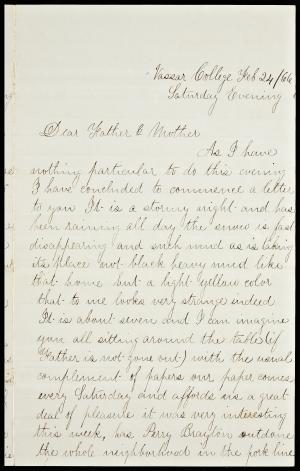 Vassar College Feb 24/66
Saturday Evening
Dear Father & Mother
As I have
nothing particular to do this evening
I have concluded to commence a letter
to you It is a stormy night and has
been raining all day the snow is fast
disappearing and such mud as is taking
its place not black heavy mud like
that home but a light yellow color
that to me looks very strange indeed
It is about seven and I can imagine
you all sitting around the table (if
Father is not gone out) with the usual
complement of papers our paper comes
every Saturday and affords us a great
deal of pleasure it was very interesting
this week, has Perry Brayton outdone
the whole neighborhood in the pork line